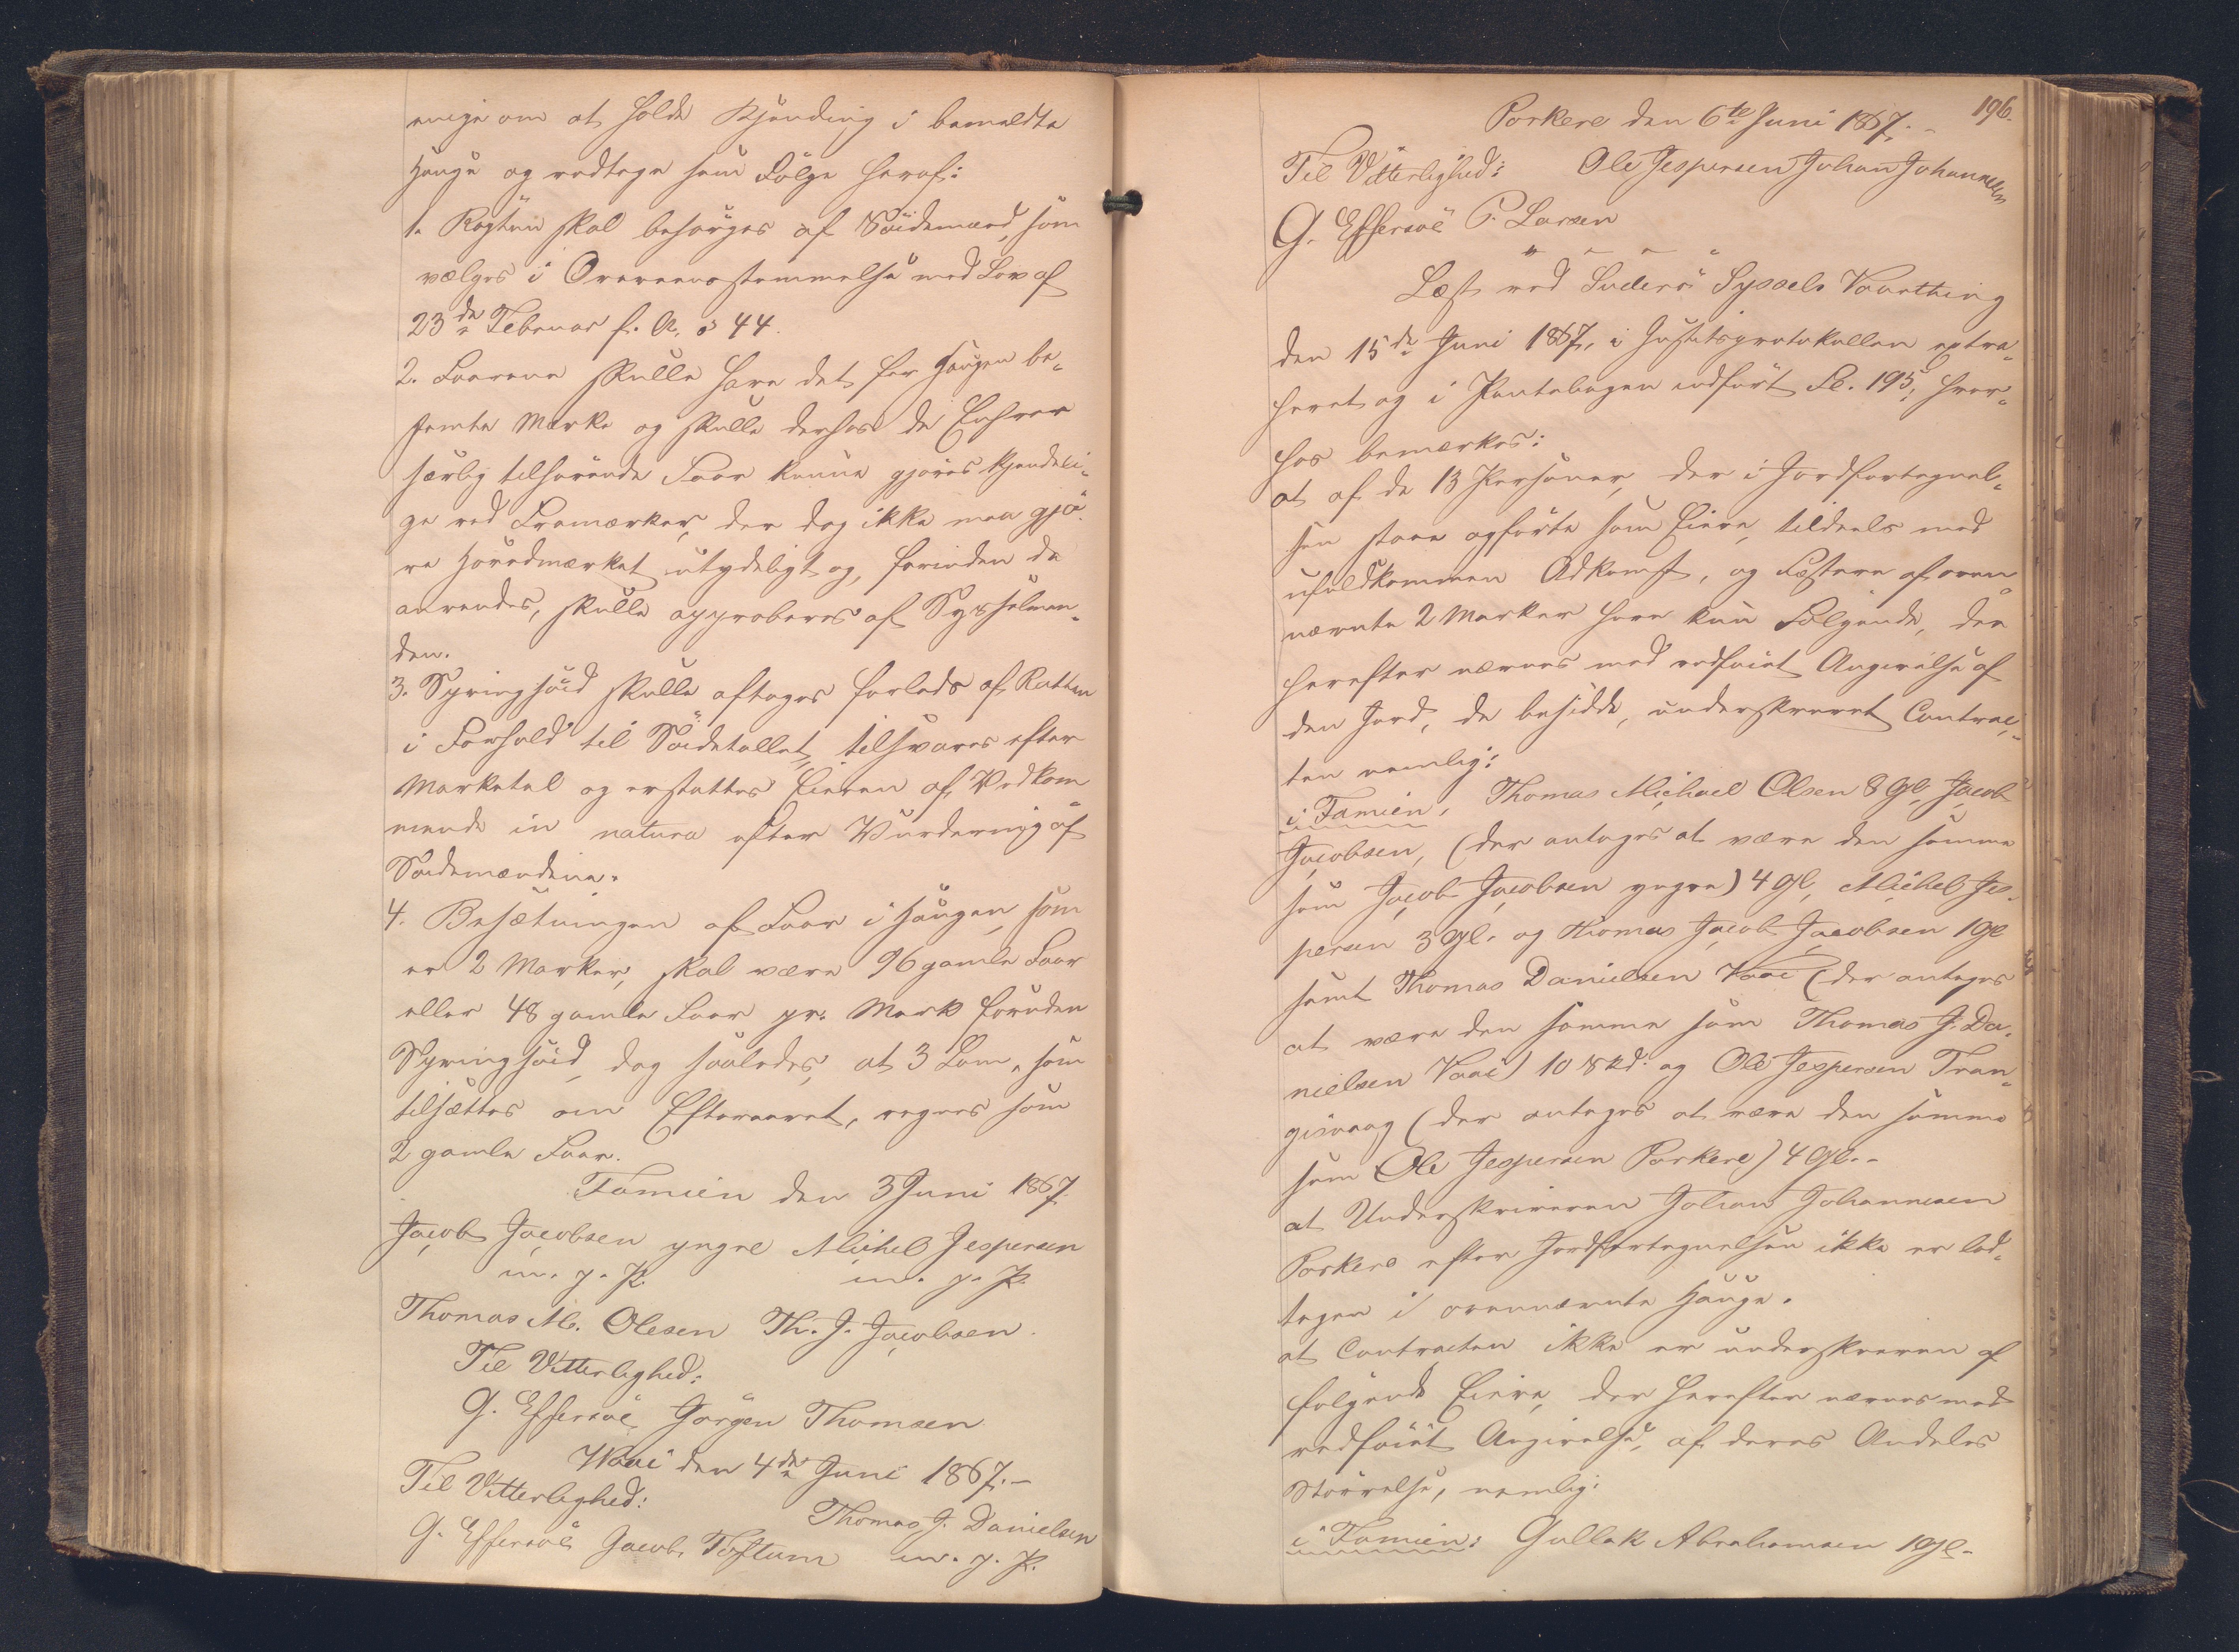 enige om at holde Kjending i bemeldte
Hauge og vedtage som Følge heraf:
1. Røgten skal besørges af Søidemænd, som
vælges i Overeensstemmelse med Lov af
23de Februar f. A. § 44.
2. Faarene skulle have det for Haugen be-
stemte Mærke og skulle derhos de Enhver
særlig tilhørende Faar kunne gjøres kjendeli-
ge ved Fremærker, der dog ikke maa gjø-
re Hovedmærket utydeligt og, forinden de
anvendes, skulle approberes af Sysselman-
den.
3. Springhøid skulle aftages forlods af Retten
i Forhold til Søidetallet, tilsvares efter
Marketal og erstattes Eieren af Vedkom
mende in natura efter Vurdering af
Søidemændene.
4. Besætningen af Faar i Haugen, som
er 2 Marker, skal være 96 gamle Faar
eller 48 gamle Faar pr. Mark foruden
Springhøid, dog saaledes, at 3 Lam, som
tilsættes om Efteraaret, regnes som
2 gamle Faar.
Famien den 3 Juni 1867.
Jacob Jacobsen yngre Michel Jespersen
m. p. P. m. p. P.
Thomas M. Olesen Th. J. Jacobsen.
Til Vitterlighed:
G. Effersøe Jørgen Thomsen
Vaai den 4de Juni 1867.-
Til Vitterlighed:
Thomas J. Danielsen
G. Effersøe Jacob Toftum m. p. P.
196.
Porkere den 6te Juni 1867.-
Til Vitterlighed: Ole Jespersen Johan Johannesen
G. Effersøe P. Larsen
Læst ved Suderø Syssels Vaarthing
den 15de Juni 1867, i Justitsprotokollen extra-
heret og i Pantebogen indført Fol. 195, hvor-
hos bemærkes:
at af de 13 Personer, der i Jordfortegnel-
sen staae opførte som Eiere, tildeels med
ufuldkommen Adkomst, og Fæstere af oven-
nævnte 2 Marker have kun Følgende, der
herefter nævnes med vedføiet Angivelse af
den Jord, de besidde, underskrevet Contrac-
ten nemlig:
i Famien, Thomas Michael Olsen 8 Gl, Jacob
Jacobsen, (der antages at være den samme
som Jacob Jacobsen yngre) 4 Gl, Michel Jes-
persen 3 Gl. og Thomas Jacob Jacobsen 1 Gl
samt Thomas Danielsen Vaai (der antages
at være den samme som Thomas J. Da-
nielsen Vaai) 10 Skd. og Ole Jespersen Tran-
gisvaag (der antages at være den samme
som Ole Jespersen Porkere) 4 Gl.-
at Underskriveren Johan Johannesen
Porkere efter Jordfortegnelsen ikke er lod-
tagen i ovennævnte Hauge.
at Contracten ikke er underskreven af
følgende Eiere, der herefter nævnes med
vedføiet Angivelse, af deres Andeles
Størrelse, nemlig:
i Famien: Gullak Abrahamsen 1 Gl-